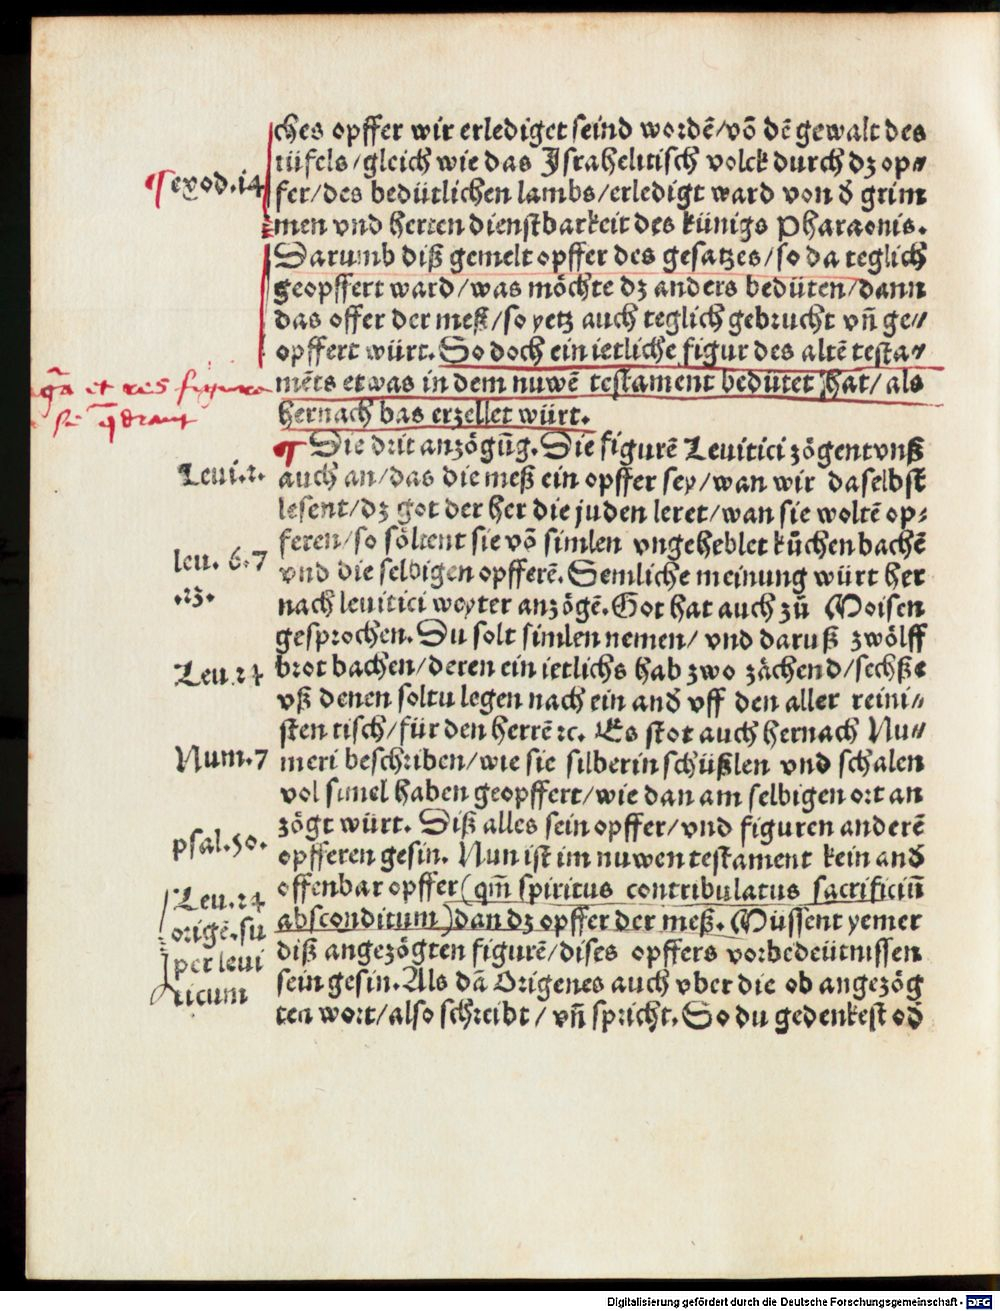 ches opffer wir erlediget seind wordē/vō dē gewalt des
tüfels/gleich wie das Israhelitisch volck durch dz op⸗
¶ exod.14
fer/des bedütlichen lambs/erledigt ward von ď grim
men vnd herten dienstbarkeit des künigs Pharaonis.
Darumb diß gemelt opffer des gesatzes/so da teglich
geopffert ward/was möchte dz anders bedüten/dann
das offer der meß/so yetz auch teglich gebrucht vñ ge⸗
opffert würt. So doch ein ietliche figur des altē testa⸗
mēts etwas in dem nuwē testament bedütet hat/als
et res figura
hernach bas erzellet würt.
¶ Die drit anzögūg. Die figurē Leuitici zögent vnß
Leui.2.
auch an/das die meß ein opffer sey/wan wir daselbst
lesent/dz got der her die juden leret/wan sie woltē op⸗
feren/so söltent sie vō simlen vngeheblet kůchen bachē
leu. 6.7
.23.
vnd die selbigen opfferē. Semliche meinung würt her
nach leuitici weyter anzögē. Got hat auch zů Moisen
gesprochen. Du solt simlen nemen/ vnd daruß zwölff
Leu.24
brot bachen/deren ein ietlichs hab zwo zächend/sechße
vß denen soltu legen nach ein and̄ vff den aller reini⸗
sten tisch/für den herrē ⁊c. Es stot auch hernach Nu⸗
Num.7
meri beschriben/wie sie silberin schüßlen vnd schalen
vol simel haben geopffert/wie dan am selbigen ort an
zögt würt. Diß alles sein opffer/vnd figuren anderē
psal.50.
opfferen gesin. Nun ist im nuwen testament kein and̄
offenbar opffer (qm̄ spiritus contribulatus sacrificiū
Leu.24
origē.su
per leui
ticum
absconditum) dan dz opffer der meß. Müssent yemer
diß angezögten figurē/dises opffers vorbedeütnissen
sein gesin. Als dā Origenes auch vber die ob angezög
ten wort/also schreibt / vñ spricht. So du gedenkest od̄
Digitalisierung gefördert durch die Deutsche Forschungsgemeinschaft - DFG